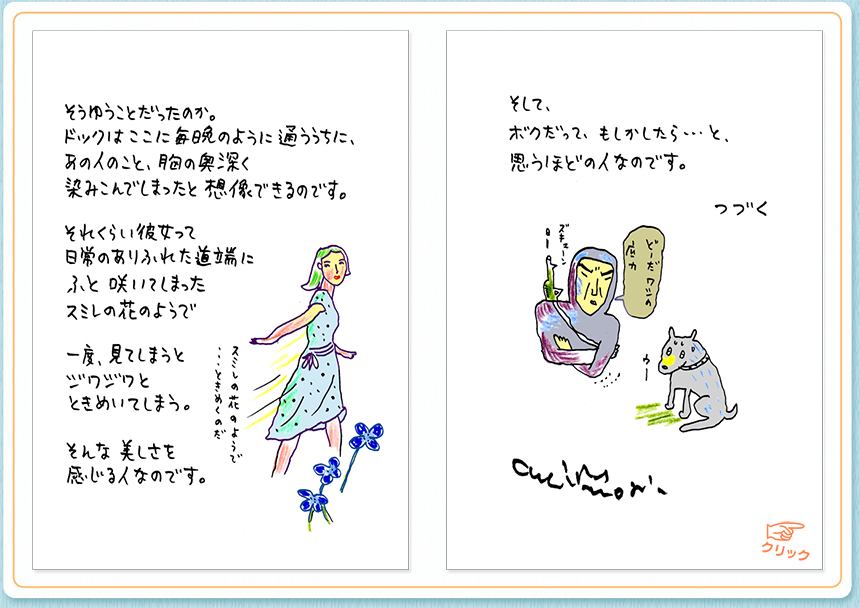 そうゆうことだったのか。
ドックはここに毎晩のように通ううちに、
あの人のこと、胸の奥深く
染みこんでしまったと想像できるのです。
それくらい彼女って
日常のありふれた道端に
ふと咲いてしまった
スミレの花のようで
一度、見てしまうと
ジワジワと
ときめいてしまう。
そんな美しさを
感じる人なのです。
スミレの花のようで
・・・ときめくのだ
そして、
ボクだって、もしかしたら・・・と、
思うほどの人なのです。
つづく
ズキューン
どーだ ワシの
ウー
クリック